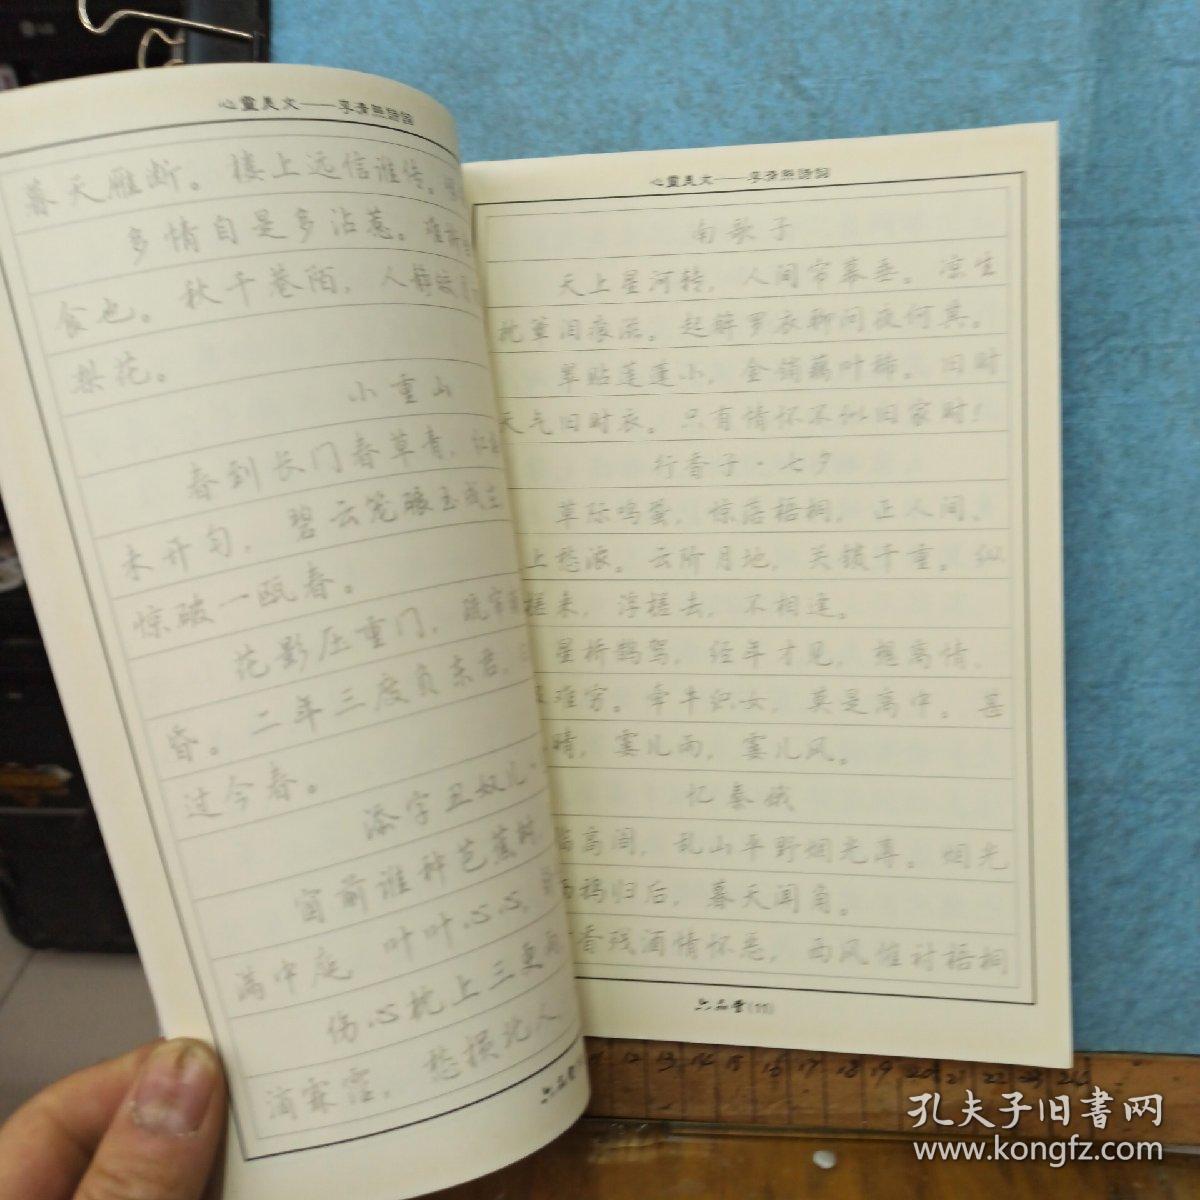 心靈美文——李清照詩詞
暮天雁断。楼上远信谁传。
多情自是多沾惹。难
食也。秋千巷陌，人静
梨花。
小重山
春到长门春草青，
未开匀，碧云笼碾玉成
惊破一瓯春。
花影压重门，疏帘
昏。二年三度负东君，
过今春。
添字丑奴儿·
窗前谁种芭蕉树
满中庭 叶叶心心，
伤心枕上三更
滴霖霪，愁损北人
六品堂
心靈美文——李清照詩詞
南歌子
天上星河转，人间帘幕垂。凉生
枕簟泪痕滋。起解罗衣聊问夜何其。
翠贴莲蓬小，金销藕叶稀。旧时
天气旧时衣。只有情怀不似旧家时！
行香子·七夕
草际鸣蛩，惊落梧桐，正人间、
上愁浓。云阶月地，关锁千重。纵
槎来，浮槎去，不相逢。
星桥鹊驾，经年才见，想离情、
难穷。牵牛织女，莫是离中。甚
晴，霎儿雨，霎儿风。
忆秦娥
临高阁，乱山平野烟光薄。烟光
鸦归后，暮天闻角。
香残酒情怀恶，西风催衬梧桐
六品堂(11)
11 12 13 14 15 16 17 18 19 20 21 22 23 24
孔夫子旧書网
www.kongfz.com